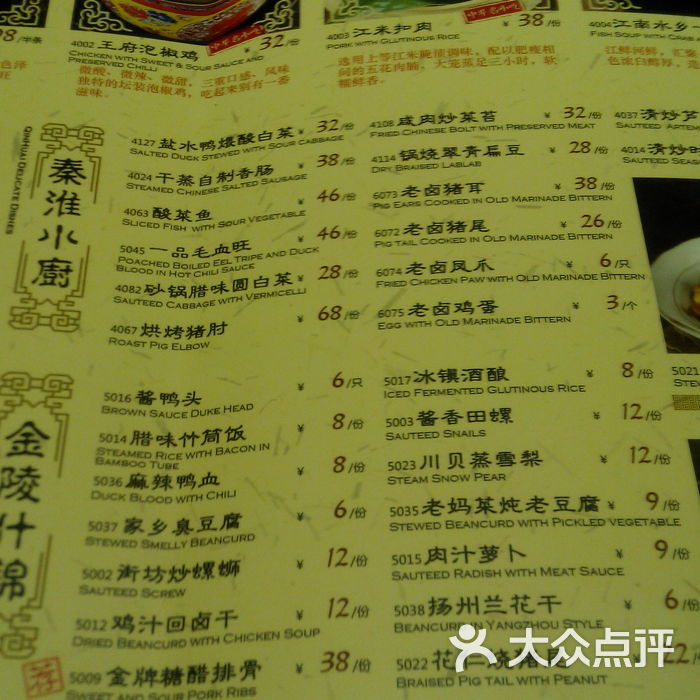 28/半条
4002 王府泡椒鸡 ¥ 32/份
CHICKEN WITH SWEET & SOUR SAUCE AND
PRESERVED CHILLI
微酸、微辣、微甜，三重口感、风味
独特的坛装泡椒鸡，吃起来别有一番
滋味。
中华名小吃
4003 江米扣肉 ¥ 38/份
PORK WITH GLUTINOUS RICE
选用上等江米腌顶调味，配以肥瘦相
间的五花肉脯，大笼蒸足三小时，软
糯鲜香。
中华名小吃
4004 江南水乡
FISH SOUP WITH CRAB A
江鲜河鲜，汇聚
色浓白醇厚，
秦淮小厨
QINHUAI DELICATE DISHES
4127 盐水鸭煨酸白菜 ¥ 32/份
SALTED DUCK STEWED WITH SOUR CABBAGE
4024 干蒸自制香肠 ¥ 38/份
STEAMED CHINESE SALTED SAUSAGE
4063 酸菜鱼 ¥ 46/份
SLICED FISH WITH SOUR VEGETABLE
5045 一品毛血旺 ¥ 46/份
POACHED BOILED EEL TRIPE AND DUCK
BLOOD IN HOT CHILI SAUCE
4082 砂锅腊味圆白菜 ¥ 28/份
SAUTEED CABBAGE WITH VERMICELLI
4067 烘烤猪肘 ¥ 68/份
ROAST PIG ELBOW
4108 咸肉炒菜苔 ¥ 32/份
FRIED CHINESE BOLT WITH PRESERVED MEAT
4114 锅烧翠青扁豆 ¥ 28/份
DRY BRAISED LABLAB
6073 老卤猪耳 ¥ 38/份
PIG EARS COOKED IN OLD MARINADE BITTERN
6072 老卤猪尾 ¥ 26/份
PIG TAIL COOKED IN OLD MARINADE BITTERN
6074 老卤凤爪 ¥ 6/只
FRIED CHICKEN PAW WITH OLD MARINADE BITTERN
6075 老卤鸡蛋 ¥ 3/个
EGG WITH OLD MARINADE BITTERN
4037 清炒芦
SAUTEED ARTEM
4014 清炒时
SAUTEED
金陵什锦
5016 酱鸭头 ¥ 6/只
BROWN SAUCE DUKE HEAD
5014 腊味竹筒饭 ¥ 8/份
STEAMED RICE WITH BACON IN
BAMBOO TUBE
5036 麻辣鸭血 ¥ 8/份
DUCK BLOOD WITH CHILI
5037 家乡臭豆腐 ¥ 6/份
STEWED SMELLY BEANCURD
5002 街坊炒螺蛳 ¥ 12/份
SAUTEED SCREW
5012 鸡汁回卤干 ¥ 12/份
DRIED BEANCURD WITH CHICKEN SOUP
荐
5009 金牌糖醋排骨 ¥ 38/份
SWEET AND SOUR PORK RIBS
5017 冰镇酒酿 ¥ 8/份
ICED FERMENTED GLUTINOUS RICE
5003 酱香田螺 ¥ 12/份
SAUTEED SNAILS
5023 川贝蒸雪梨 ¥ 12/份
STEAM SNOW PEAR
5035 老妈菜炖老豆腐 ¥ 9/份
STEWED BEANCURD WITH PICKLED VEGETABLE
5015 肉汁萝卜 ¥ 9/份
SAUTEED RADISH WITH MEAT SAUCE
5038 扬州兰花干 ¥ 6/份
BEANCURD IN YANGZHOU STYLE
5022 花仁烧猪尾 22/份
BRAISED PIG TAIL WITH PEANUT
5021
STE
大众点评